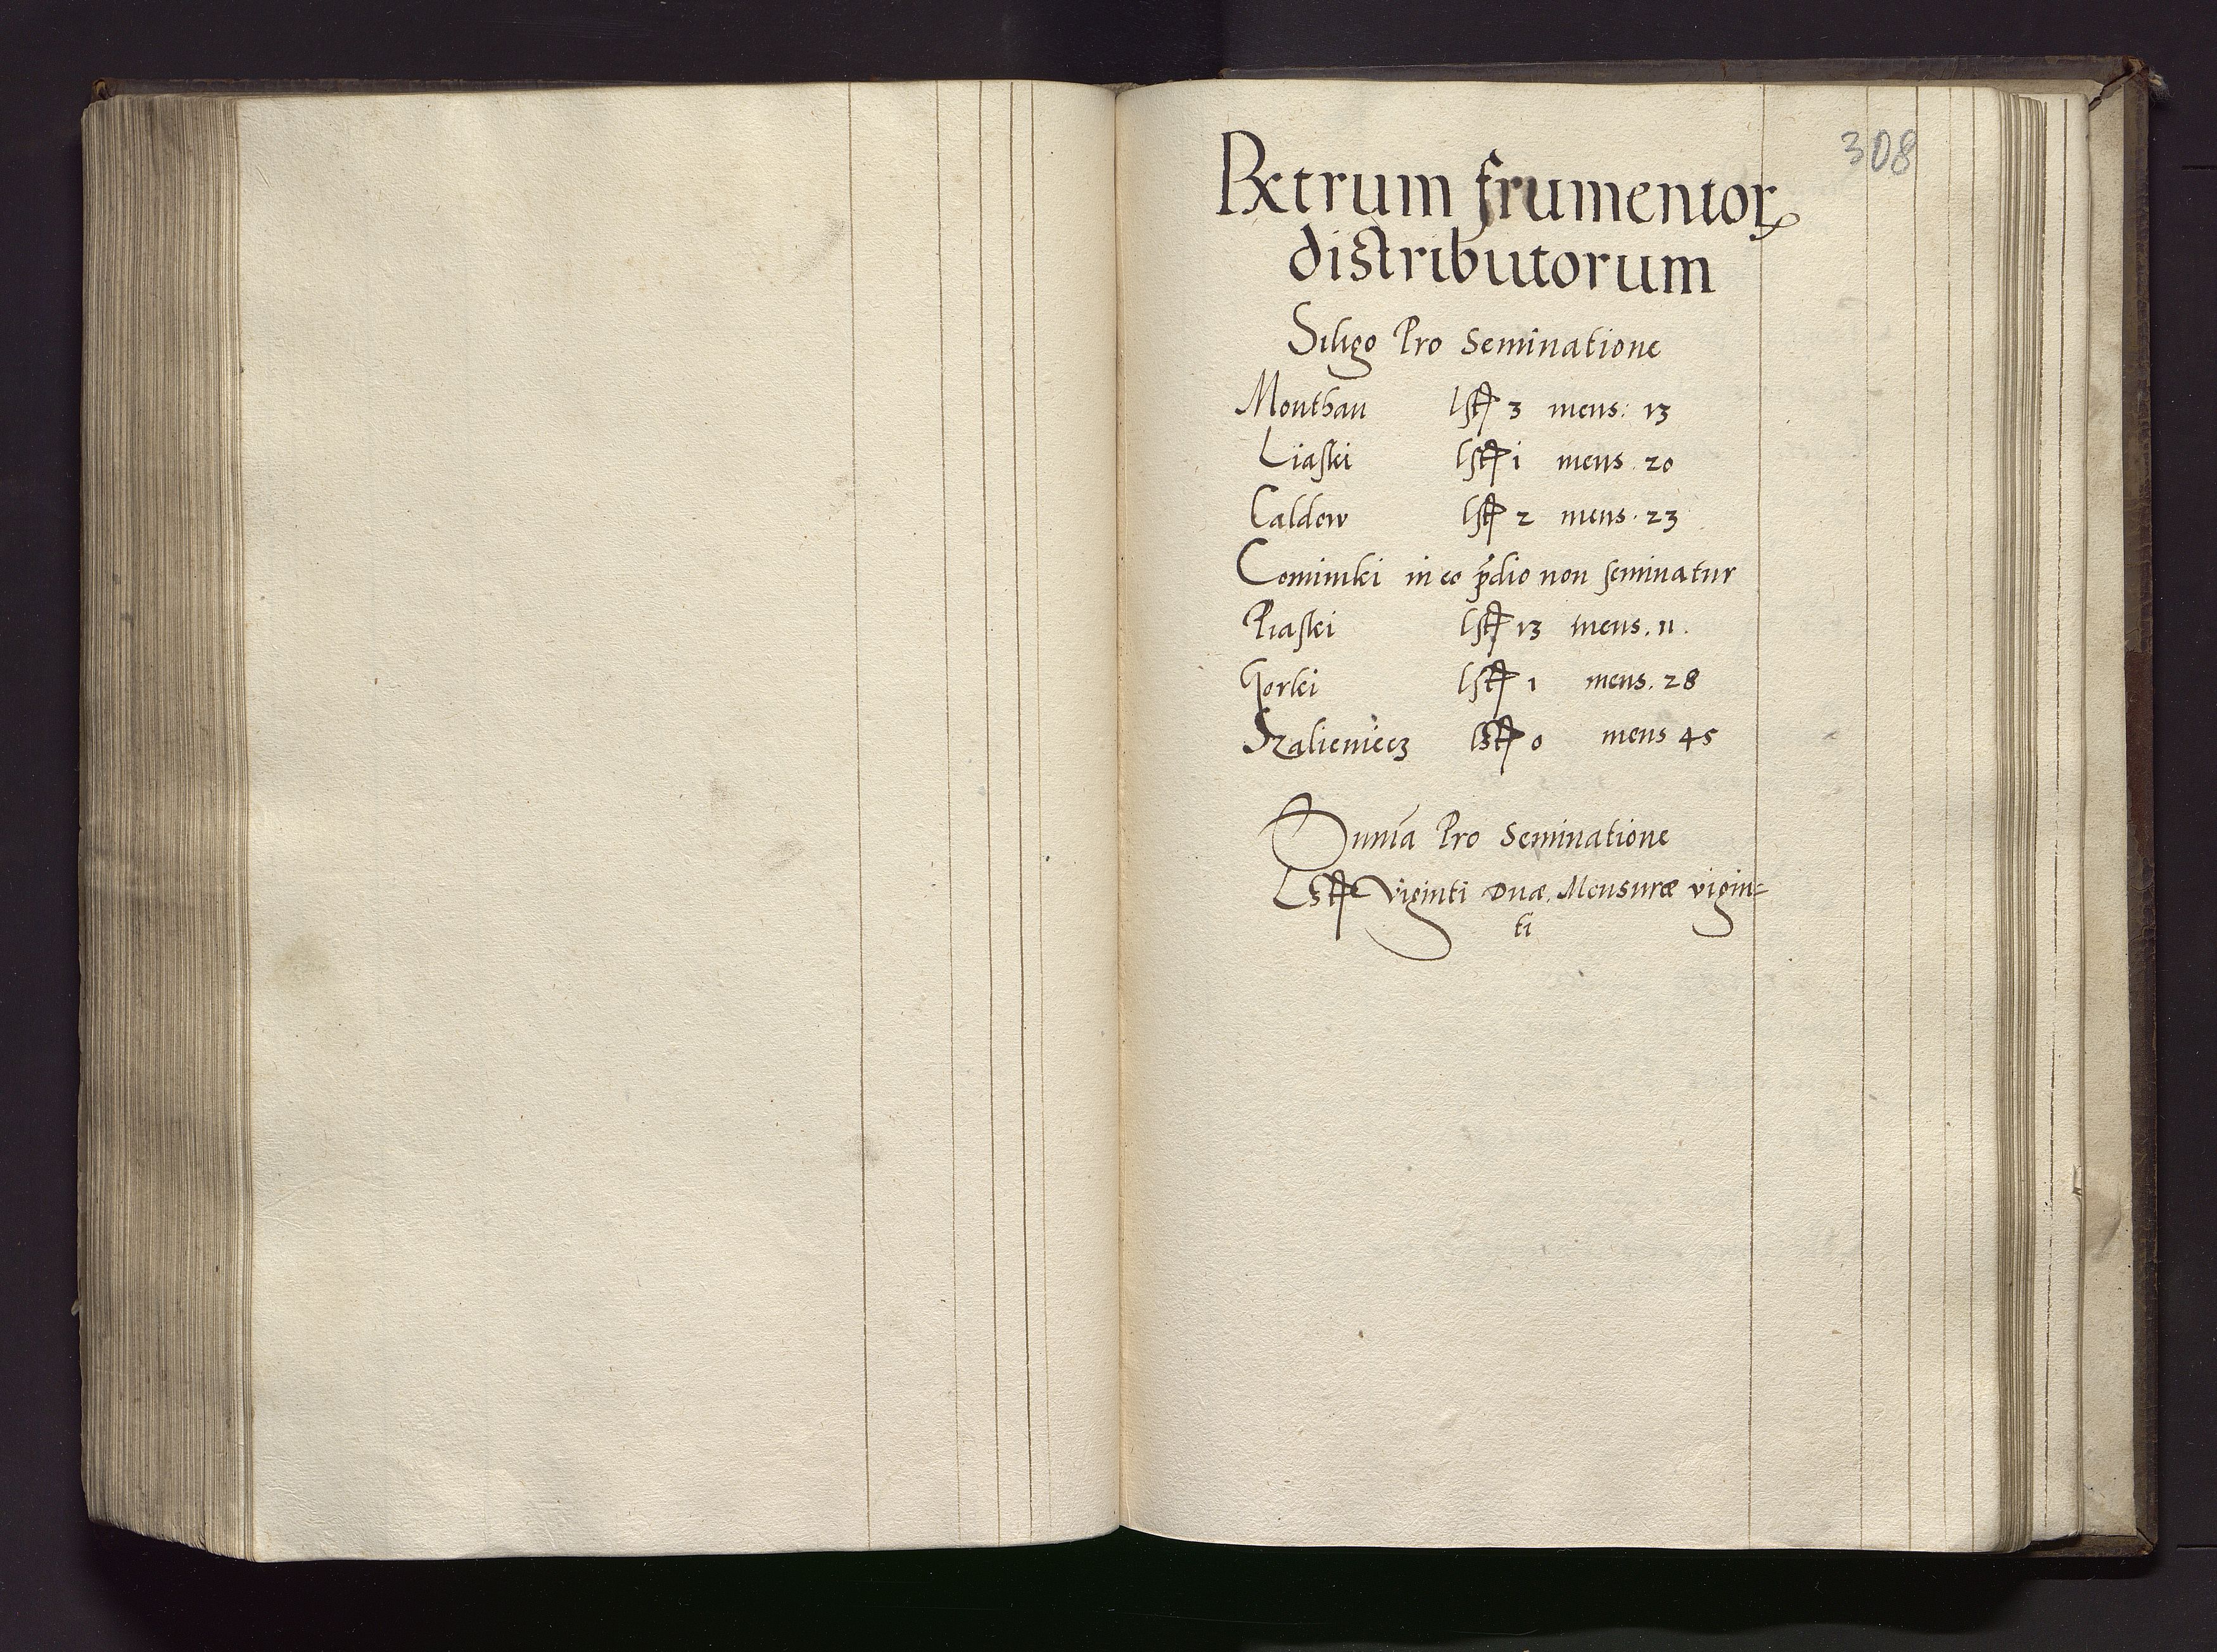 308
Rxtrum frumentorꝝ
distributorum
Siligo Pro Seminatione
Monthau lstꝭ 3 mens: 13
Liaski lstꝭ 1 mens. 20
Caldow lstꝭ 2 mens. 23
Cominki in eo p̄dio non seminatur
Piaski lstꝭ 13 mens. 11.
Gorki lstꝭ 1 mens. 28
Szalieniecz lstꝭ 0 mens 45
Sum̄a Pro Seminatione
Lstꝭ Viginti Duæ Mensuræ vigin=
ti